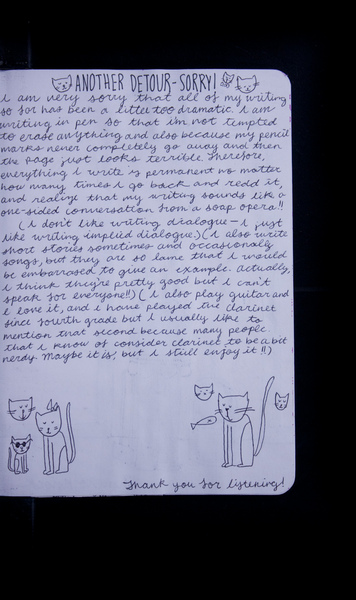 ANOTHER DETOUR-SORRY!
i am very sorry that all of my writing
so far has been a little too dramatic. i am
writing in pen so that i'm not tempted
to erase anything and also because my pencil
marks never completely go away and then
the page just looks terrible. therefore,
everything i write is permanent no matter
how many times i go back and redd it,
and realize that my writing sounds like a
one-sided conversation from a soap opera!!
(i don't like writing dialogue-i just
like writing implied dialogue.)(i also write
short stories sometimes and occasionally
songs, but they are so lame that i would
be embarrassed to give an example. actually,
i think they're pretty good but i can't
speak for everyone!!)(i also play guitar and
i love it, and i have played the clarinet
since fourth grade but i usually like to
mention that second because many people
that i know of consider clarinet to be a bit
nerdy. Maybe it is, but i still enjoy it!!)
Thank you for listening!